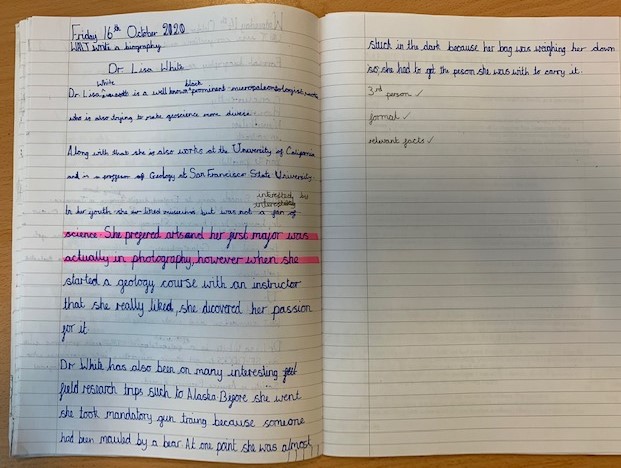 Friday 16th October 2020
WALT write a biography
Dr Lisa White
White black
Dr. Lisa is a well known prominent micropaleontologist
who is also trying to make geoscience more diverse.
Along with that she is also works at the University of California
and is a proffesor of Geology at San Francisco State University
interested by
In her youth she liked museums but was not a fan of
science. She prefered arts and her first major was
actually in photography, however when she
started a geology course with an instructor
that she really liked, she dicovered her passion
for it
Dr White has also been on many interesting
field research trips such to Alaska. Before she went
she took mandatory gun traing because someone
had been mauled by a bear. At one point she was almost
stuck in the dark because her bag was weighing her down
so she had to get the person she was with to carry it.
3rd person ✓
formal ✓
relevant facts ✓